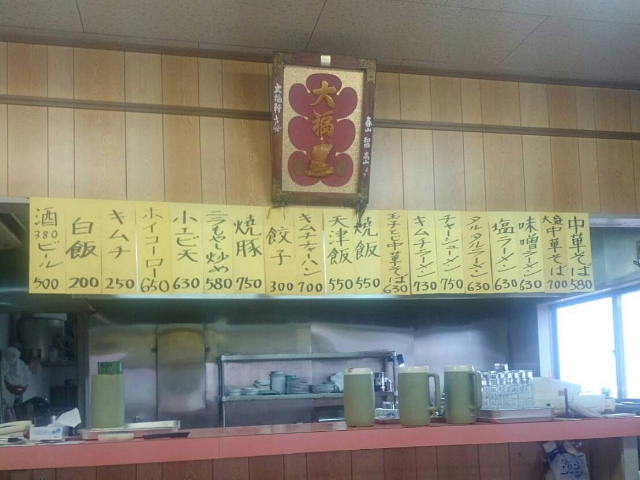 大福
中華そば 580
大盛中華そば 700
味噌ラーメン 630
塩ラーメン 630
タルタルラーメン 630
チャーシューメン 750
キムチラーメン 730
玉子とじ中華そば 630
焼飯 550
天津飯 550
キムチチャーハン 700
餃子 300
焼豚 750
ニラもやし炒め 580
小エビ天 630
ホイコーロー 650
キムチ 250
白飯 200
酒 380
ビール 500